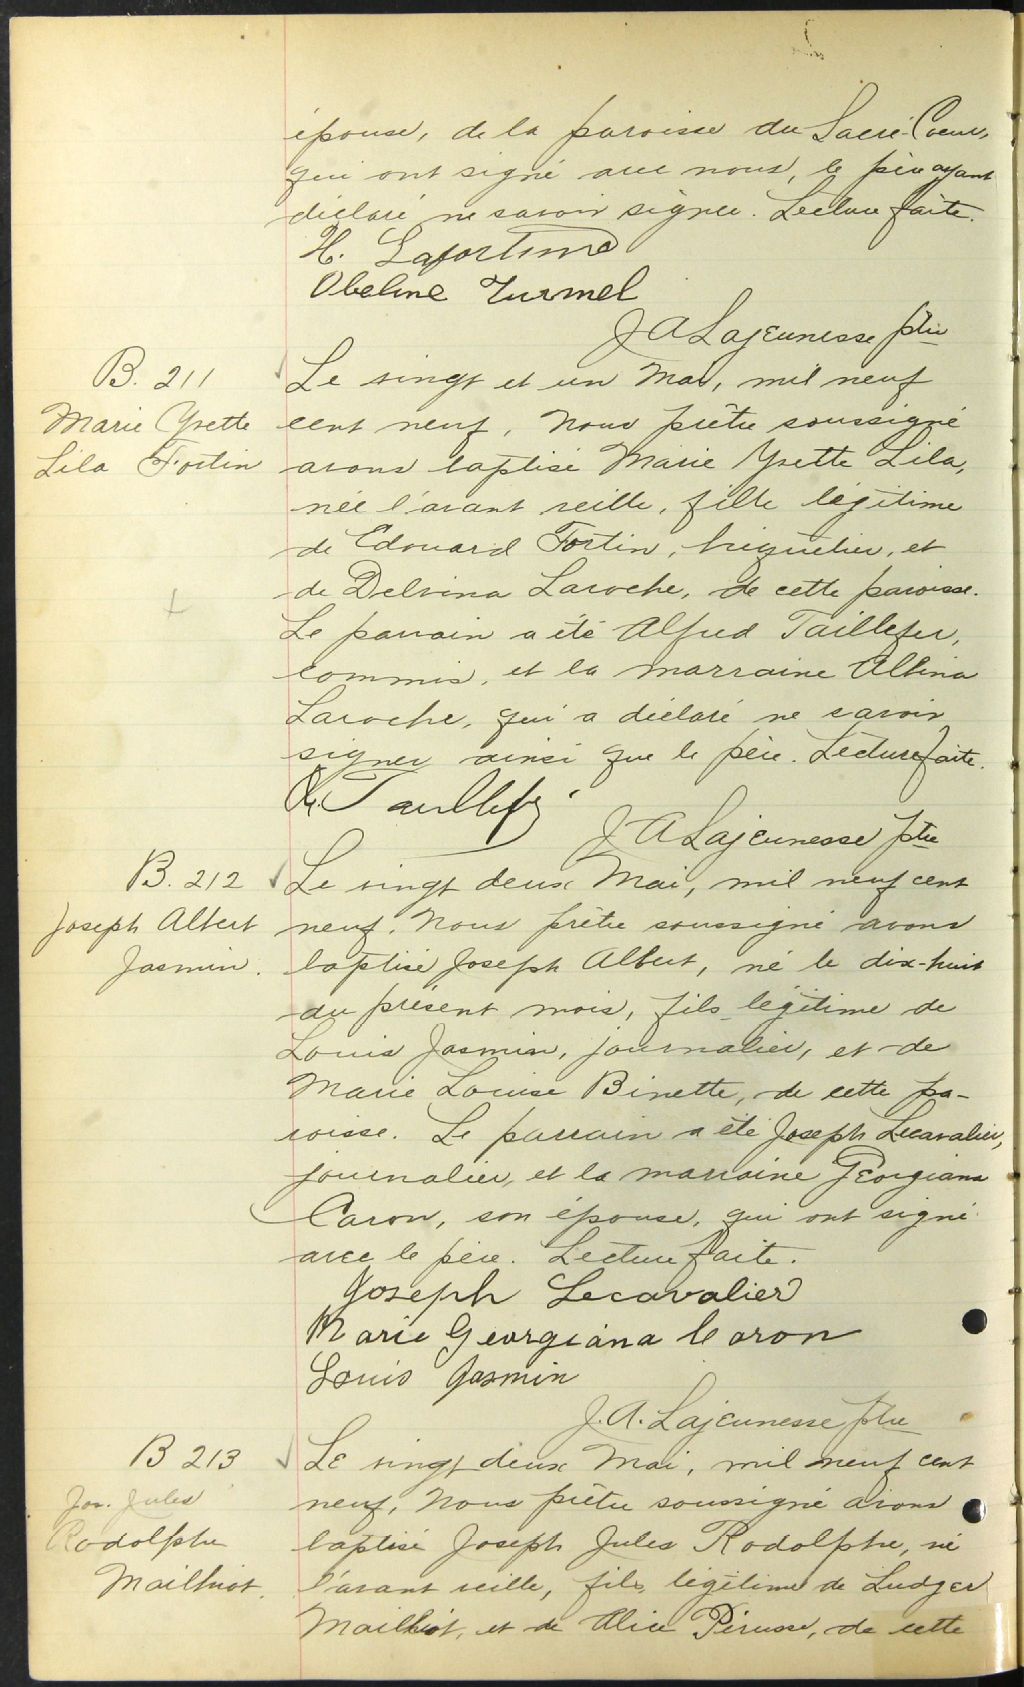 épouse, de la paroisse du Sacré-Coeur,
qui ont signé avec nous, le père ayant
déclaré ne savoir signer. Lecture faite.
H. Lafortune
Obeline Turmel
J A Lajeunesse ptre
B. 211
Marie Yvette
Lila Fortin
Le vingt et un Mai, mil neuf
cent neuf, Nous prêtre soussigné
avons baptisé Marie Yvette Lila,
née l'avant veille, fille légitime
de Edouard Fortin, briquetier, et
de Delvina Laroche, de cette paroisse.
Le parrain a été Alfred Taillefer,
commis, et la marraine Albina
Laroche, qui a déclaré ne savoir
signer ainsi que le père. Lecture faite.
A. Taillefer
J A Lajeunesse ptre
B. 212
Joseph Albert
Jasmin.
Le vingt deux Mai, mil neuf cent
neuf, Nous prêtre soussigné avons
baptisé Joseph Albert, né le dix-huit
du présent mois, fils légitime de
Louis Jasmin, journalier, et de
Marie Louise Binette, de cette pa-
roisse. Le parrain a été Joseph Lecavalier,
journalier, et la marraine Georgiana
Caron, son épouse, qui ont signé
avec le père. Lecture faite.
Joseph Lecavalier
Marie Georgiana Caron
Louis Jasmin
J. A. Lajeunesse ptre
B 213
Jos. Jules
Rodolphe
Mailhiot.
Le vingt deux Mai, mil neuf cent
neuf, Nous prêtre soussigné avons
baptisé Joseph Jules Rodolphe, né
l'avant veille, fils légitime de Ludger
Mailhiot, et de Alice Pérusse, de cette